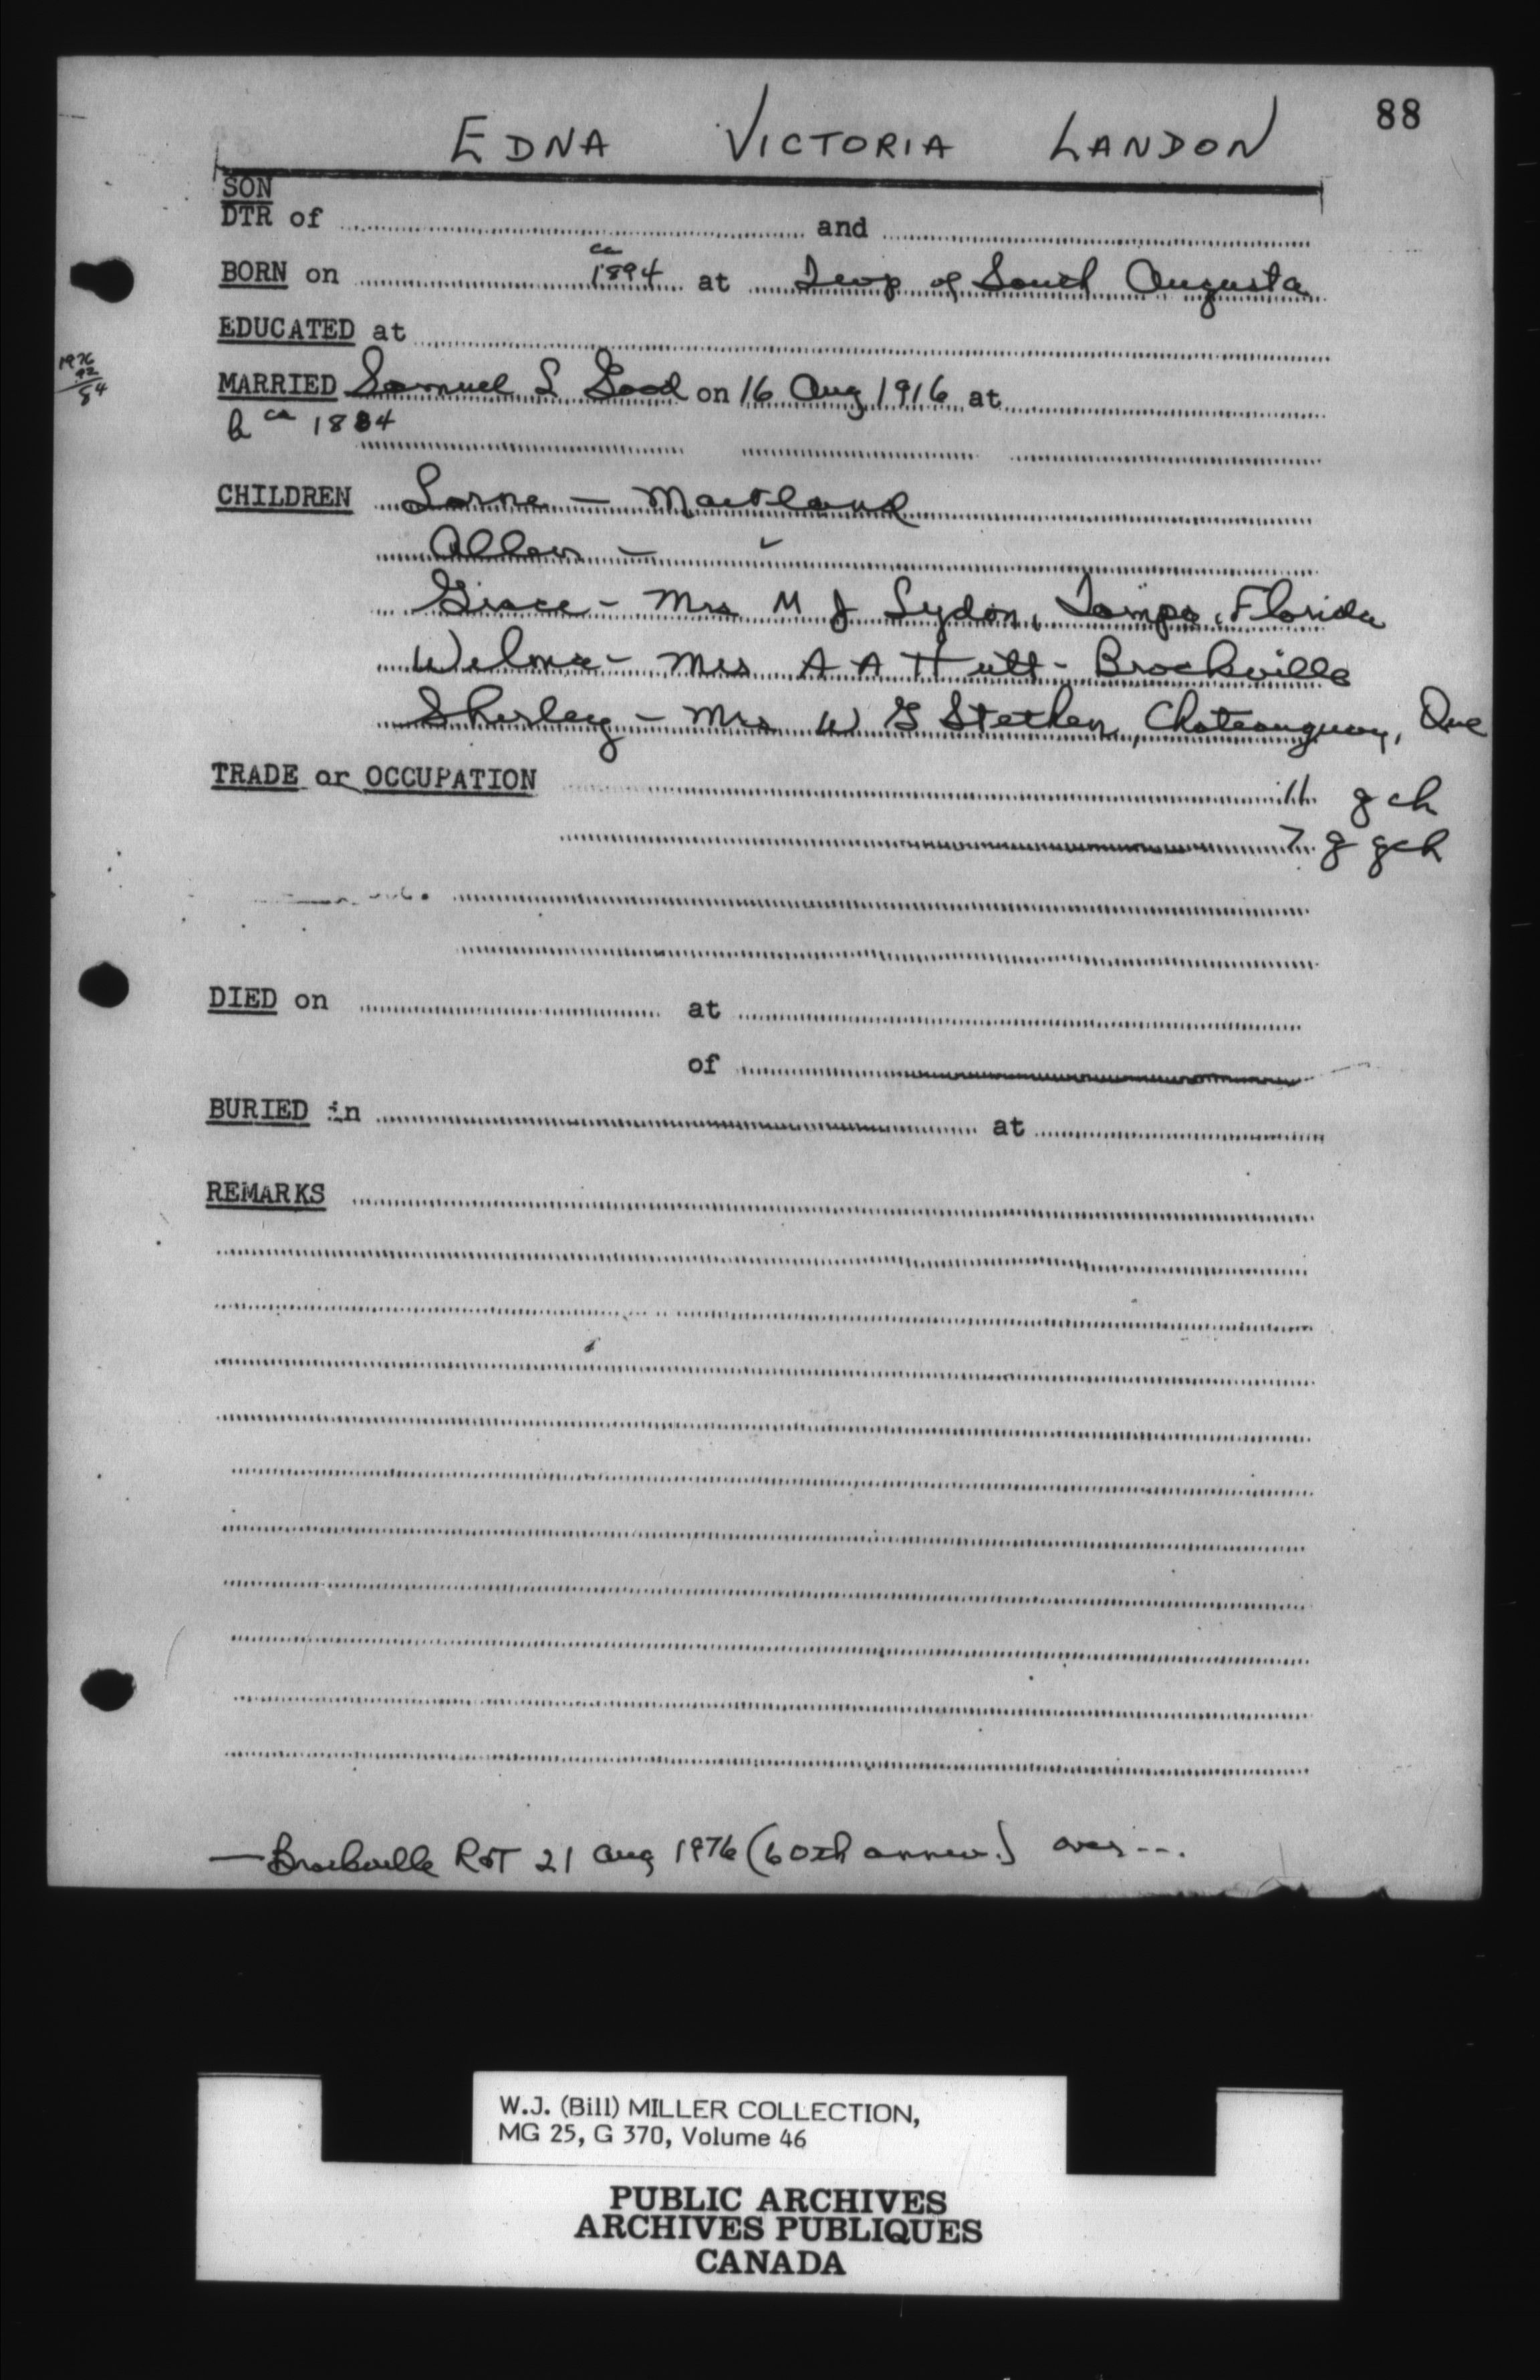 88
EDNA VICTORIA LANDON
SON
DTR of and
BORN on ca 1894 at Twp of South Augusta
EDUCATED at
1976
92
84
MARRIED Samuel S Good on 16 Aug 1916 at
b ca 1884
CHILDREN Lorne - Maitland
Allan - "
Grace - Mrs M J Lydon, Tampa, Florida
Wilma - Mrs A A Hutt - Brockville
Shirley - Mrs W G Stethen, Chateauguay, Que
TRADE or OCCUPATION 11 g ch
7 g gch
DIED on at
of
BURIED in at
REMARKS
— Brockville R&T 21 Aug 1976 (60th anniv.) over ---
W.J. (Bill) MILLER COLLECTION,
MG 25, G 370, Volume 46
PUBLIC ARCHIVES
ARCHIVES PUBLIQUES
CANADA